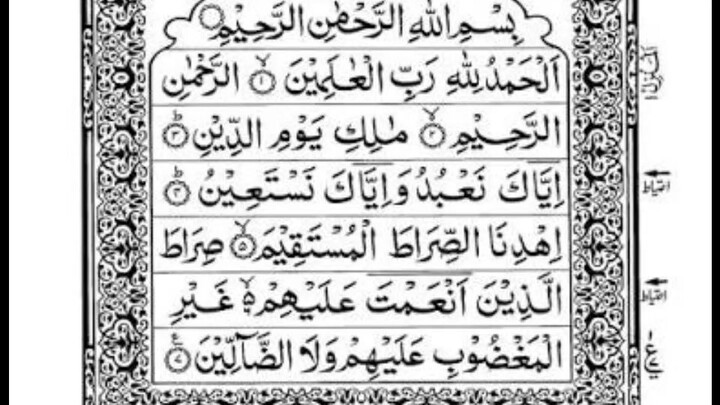 بِسْمِ اللهِ الرَّحْمٰنِ الرَّحِيْمِ
اَلْحَمْدُ لِلّٰهِ رَبِّ الْعٰلَمِيْنَ ۙ﴿۱﴾ الرَّحْمٰنِ
الرَّحِيْمِ ۙ﴿۲﴾ مٰلِكِ يَوْمِ الدِّيْنِ ؕ﴿۳﴾
اِيَّاكَ نَعْبُدُ وَاِيَّاكَ نَسْتَعِيْنُ ؕ﴿۴﴾
اِهْدِنَا الصِّرَاطَ الْمُسْتَقِيْمَ ۙ﴿۵﴾ صِرَاطَ
الَّذِيْنَ اَنْعَمْتَ عَلَيْهِمْ ۙ۵ غَيْرِ
الْمَغْضُوْبِ عَلَيْهِمْ وَلَا الضَّآلِّيْنَ ﴿۷﴾ ع
احتياط
احتياط